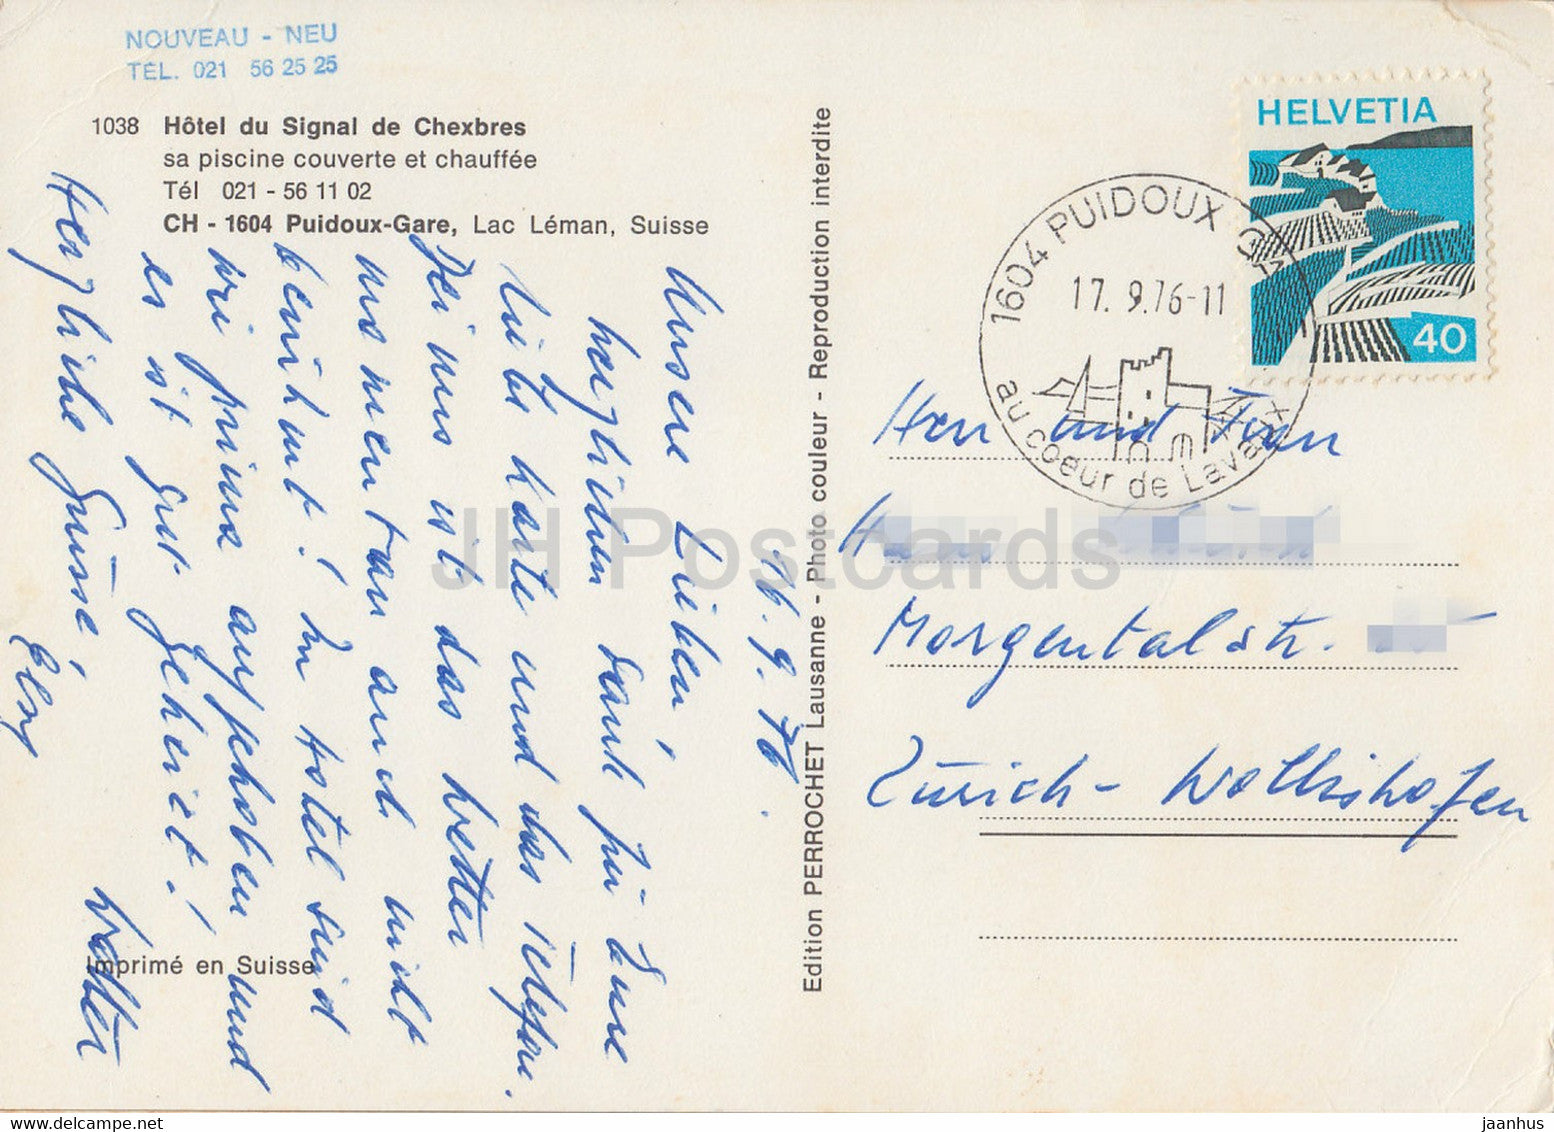 NOUVEAU - NEU
TEL. 021 56 25 25
1038 Hôtel du Signal de Chexbres
sa piscine couverte et chauffée
Tél 021 - 56 11 02
CH - 1604 Puidoux-Gare, Lac Léman, Suisse
16. 9. 76.
Unsere Lieben,
herzlichen Dank für Eure
liebe Karte und das Telefon.
Bei uns ist das Wetter
momentan auch nicht
berühmt! Im Hotel sind
wir prima aufgehoben und
es ist gut geheizt!
Herzliche Grüsse,
Elsy
Walter
Imprimé en Suisse
Edition PERROCHET Lausanne - Photo couleur - Reproduction interdite
HELVETIA
40
1604 PUIDOUX
17. 9.76-11
au coeur de Lavaux
Herrn und Frau
Morgentalstr.
Zürich - Wollishofen
JH Postcards
www.delcampe.net
jaanhus